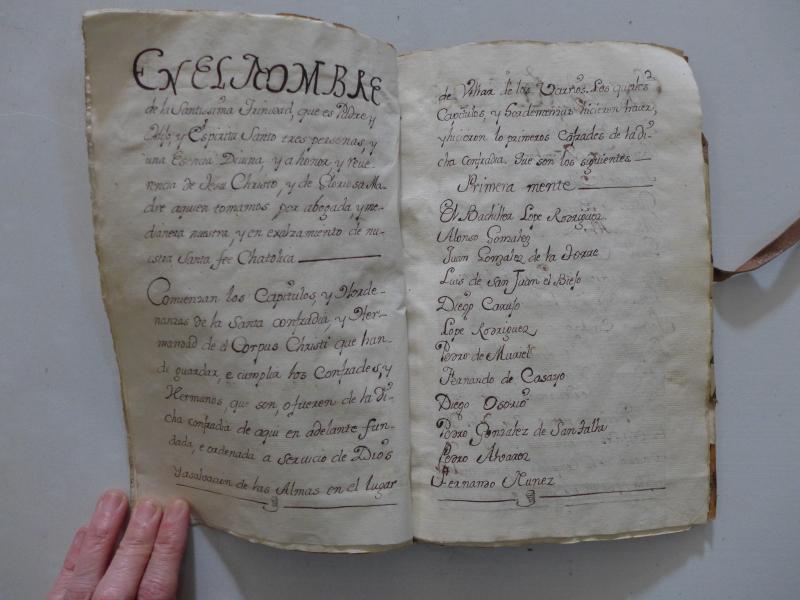 EN EL NOMBRE
de la Santissima Trinidad, que es Padre y
Hijo, y Espiritu Santo tres personas, y
una Esencia Divina, y a honor, y reve-
rencia de Jesu Christo, y de Gloriosa Ma-
dre aquien tomamos por abogada y me-
dianera nuestra, y en exalzamiento de nu-
estra Santa fee Chatolica
Comienzan los Capitulos, y Horde-
nanzas de la Santa confradia, y Her-
mandad de el Corpus Christi que han-
de guardar, e cumplir los Confrades, y
Hermanos, que son, o fueren de la di-
cha confradia de aqui en adelante fun-
dada, e ordenada a servicio de Dios
Yasalvacion de las Almas en el lugar
de Villar de los Los quales
Capitulos, y hordenanzas hicieron hacer,
y hicieron lo primeros Cofrades de la di-
cha confradia. Que son los siguientes
Primera mente
El Bachiller Lope Rodriguez
Alonso Gonzalez
Juan Gonzalez de la Torre
Luis de San Juan el Biejo
Diego
Lope Rodriguez
Pedro de Muriel
Fernando de Casayo
Diego Osorio
Pedro Gonzalez de
Pedro Alvarez
Fernando Nunez